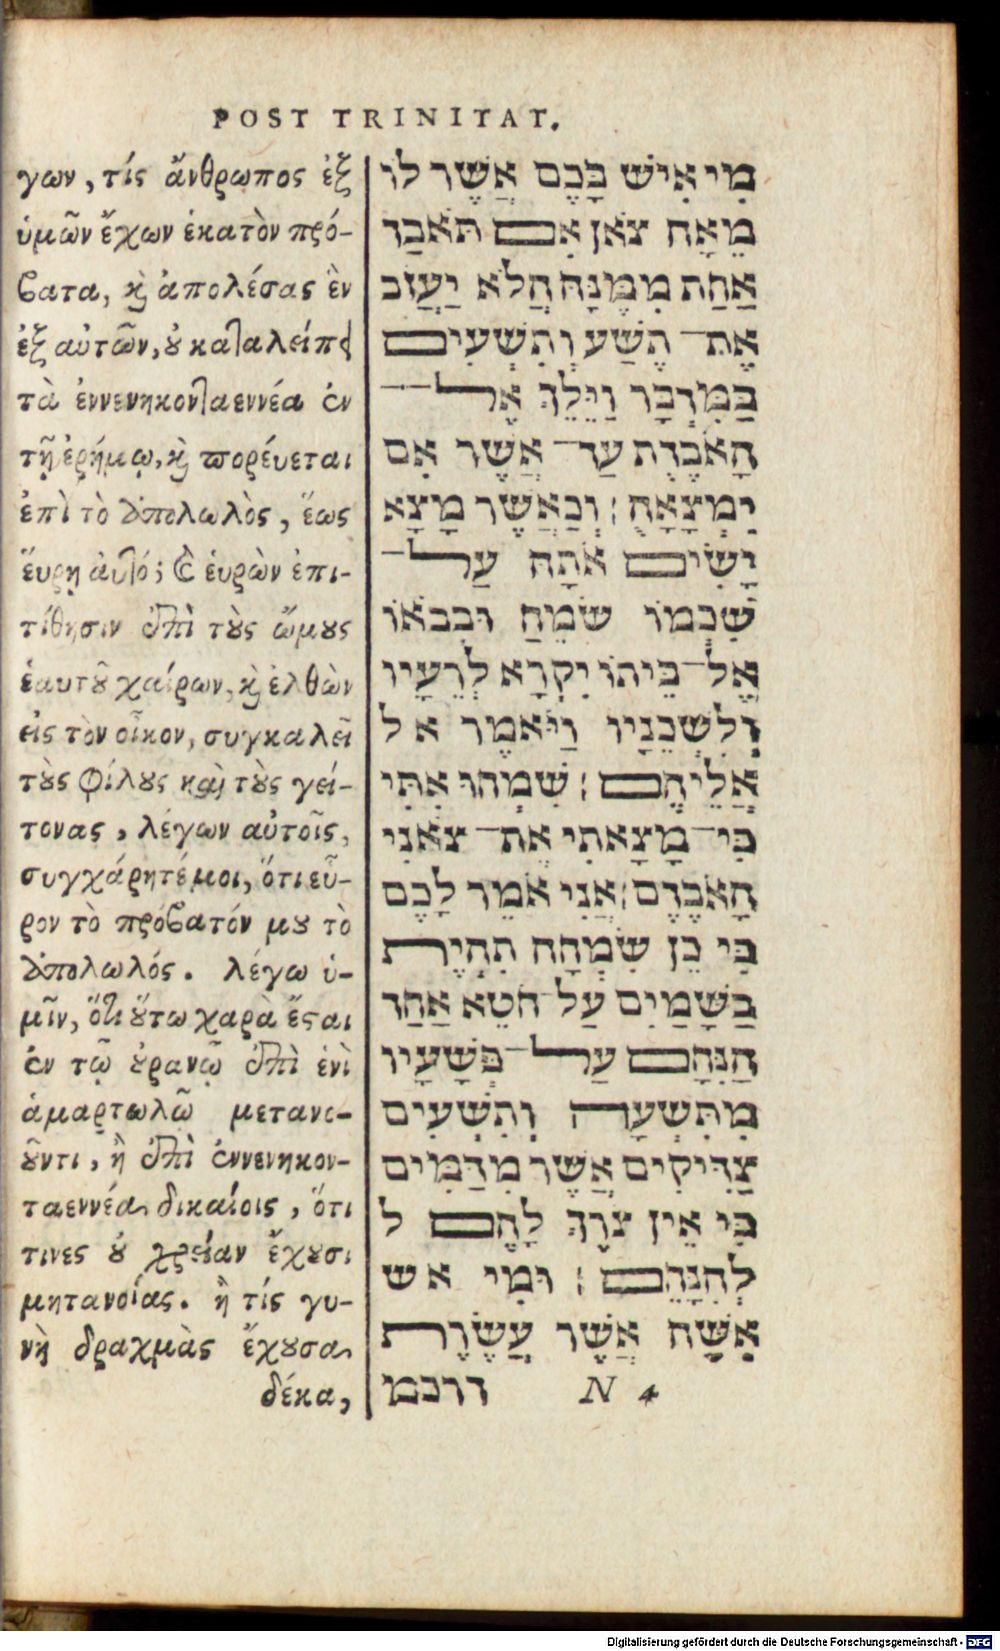 POST TRINITAT.
γων, τίς ἄνθρωπος ἐξ
ὑμῶν ἔχων ἑκατὸν πρό-
βατα, καὶ ἀπολέσας ἓν
ἐξ αὐτῶν, ȣ καταλείπει
τὰ ἐννενηκονταεννέα ἐν
τῇ ἐρήμῳ, καὶ πορέυεται
ἐπὶ τὸ ἀπολωλὸς, ἕως
ἕυρῃ ἀυτό; καὶ ἑυρὼν ἐπι-
τίθησιν ἐπὶ τȣ̀ς ὤμȣς
ἑαυτȣ͂ χαίρων, καὶ ἐλθὼν
εἰς τὸν οἶκον, συγκαλεῖ
τȣ̀ς φίλȣς καὶ τȣ̀ς γεί-
τονας, λέγων αὐτοῖς,
συγχάρητέ μοι, ὅτι εὗ-
ρον τὸ πρόβατόν μȣ τὸ
ἀπολωλός. λέγω ὑ-
μῖν, ὅτι ȣ̔́τω χαρὰ ἔσται
ἐν τῷ ȣ̓ρανῷ ἐπὶ ἑνὶ
ἁμαρτωλῶ μετανο-
ȣ͂ντι, ἢ ἐπὶ ἐννενηκον-
ταεννέα δικαίοις, ὅτι
τινες ȣ̓ χρείαν ἔχȣσι
μητανοίας. ἢ τίς γυ-
νὴ δραχμὰς ἔχȣσα
δέκα,
מִי אִישׁ בָּכֶם אֲשֶׁר לוֹ
מֵאָה צֹאן אִם תֹּאבַד
אַחַת מִמֶּנָּה הֲלֹא יַעֲזֹב
אֶת־ תֶּשַׁע וְתִשְׁעִים
בַּמִּדְבָּר וַיֵּלֵךְ אֶל־
הָאֹבֶדֶת עַד־ אֲשֶׁר אִם
יִמְצָאָהּ׃ וְכַאֲשֶׁר מָצָא
יָשִׂים אֹתָהּ עַל־
שִׁכְמוֹ שֹׂמֵחַ וּבְבֹאוֹ
אֶל־ בֵּיתוֹ יִקְרָא לְרֵעָיו
וְלִשְׁכֵנָיו וַיֹּאמֶר א ל
אֲלֵיהֶם׃ שִׂמְחוּ אִתִּי
כִּי־ מָצָאתִי אֶת־ צֹאנִי
הָאֹבֶדֶם׃ אֲנִי אֹמֵר לָכֶם
כִּי כֵן שִׂמְחָה תִהְיֶה
בַּשָּׁמַיִם עַל־ חֹטֵא אַחַד
הַנִּחָם עַל־ פְּשָׁעָיו
מִתִּשְׁעָה וְתִשְׁעִים
צַדִּיקִים אֲשֶׁר מִדַּמִּים
כִּי אֵין צֹרֶךְ לָהֶם ל
לְהִנָּחֵם׃ וּמִי א ש
אִשָּׁה אֲשֶׁר עֲשֶׂרֶת
דרכמ
N 4
Digitalisierung gefördert durch die Deutsche Forschungsgemeinschaft - DFG